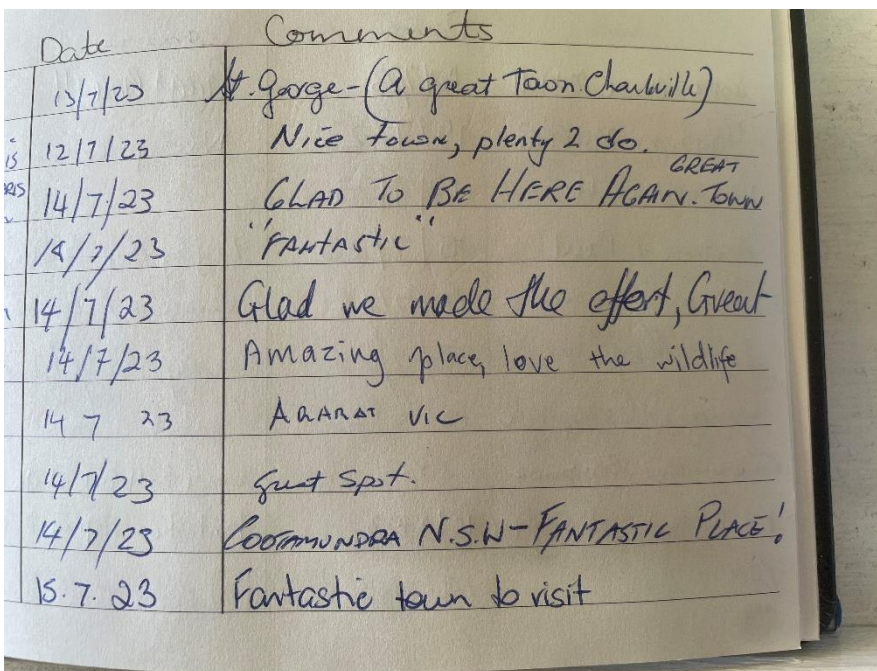 Date Comments
13/7/23 St. George - (A great Town Charleville)
is 12/7/23 Nice town, plenty 2 do.
GREAT
RIS 14/7/23 GLAD TO BE HERE AGAIN. TOWN
14/7/23 "FANTASTIC"
14/7/23 Glad we made the effort, Great
14/7/23 Amazing place, love the wildlife
14 7 23 ARARAT VIC
14/7/23 Great Spot.
14/7/23 COOTAMUNDRA N.S.W - FANTASTIC PLACE!
15.7.23 Fantastic town to visit